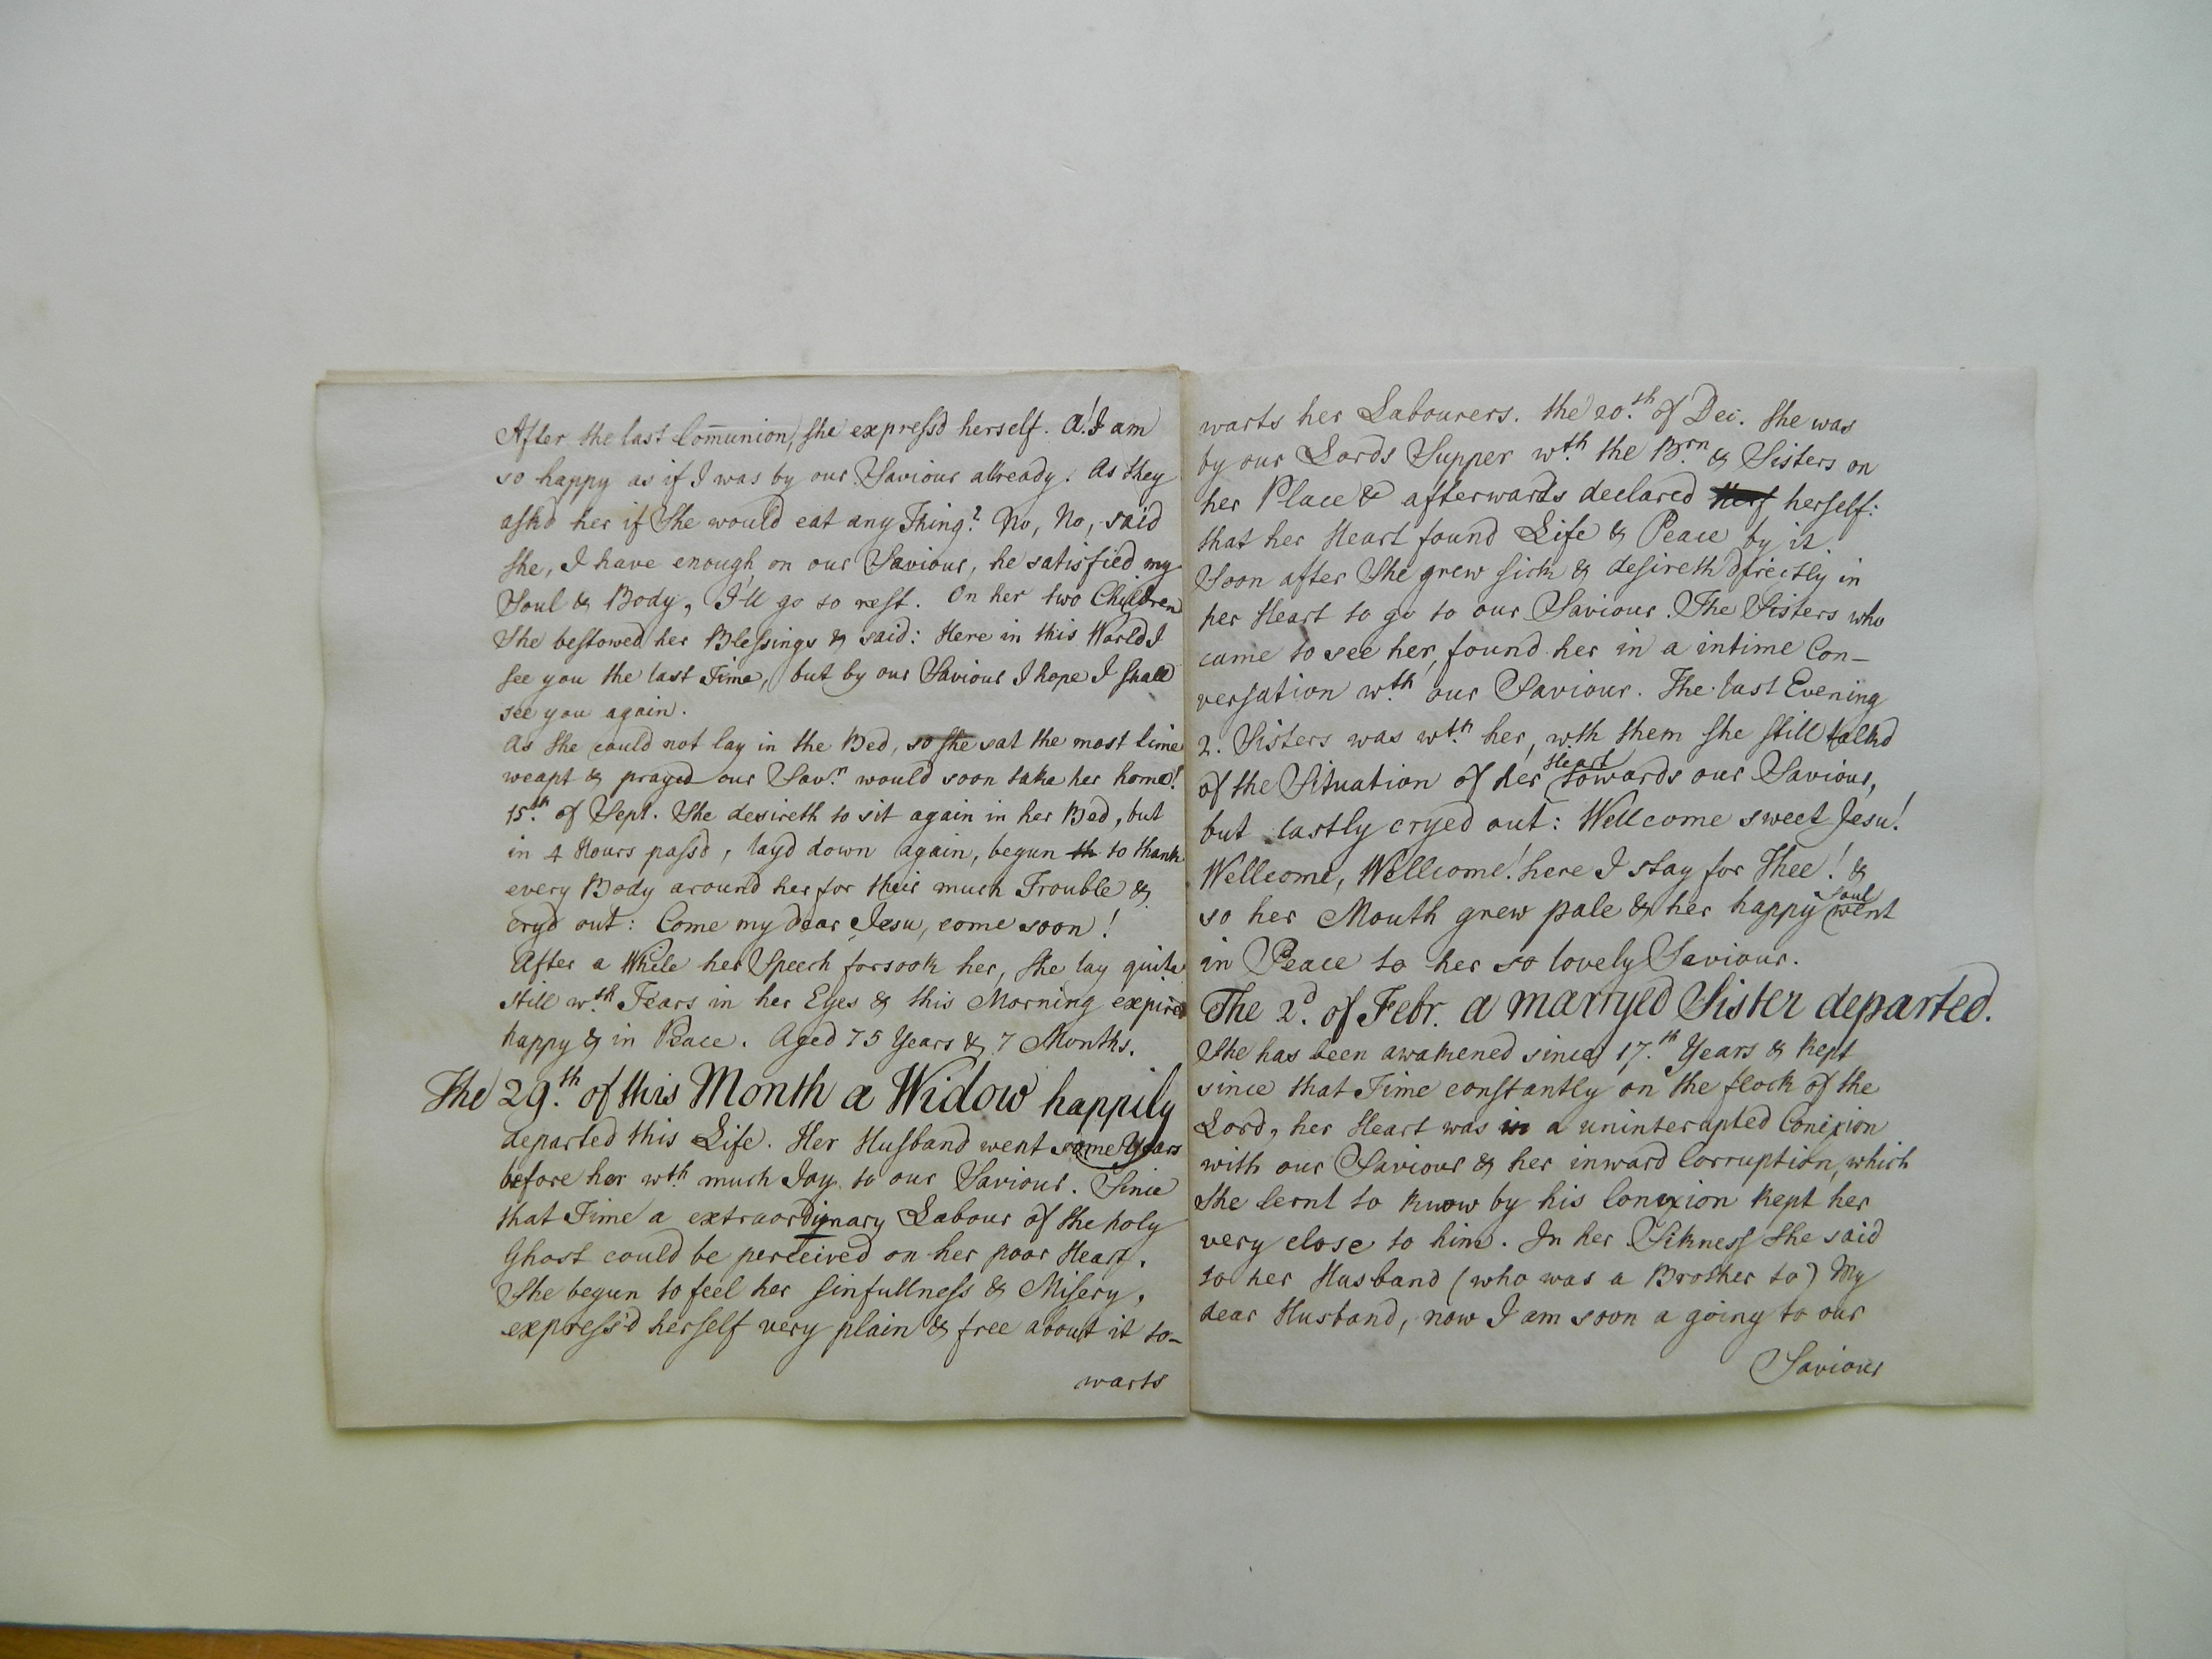 After the last Com̄union, she express'd herself. A! I am
so happy as if I was by our Saviour allready. As they
ask'd her if She would eat any Thing? No, No, said
she, I have enough on our Saviour, he satisfied my
Soul & Body, I'll go to rest. On her two Children
She bestowed her Blessings & said: Here in this World I
see you the last Time, but by our Saviour I hope I shall
see you again.
As she could not lay in the Bed, so she sat the most time
weapt & prayed our Sav.r would soon take her home!
15.th of Sept. She desireth to sit again in her Bed, but
in 4 Hours pass'd, layd down again, begun th to thank
every Body around her for their much Trouble &
cryd out: Come my dear Jesu, come soon!
After a While her Speech forsook her, she lay quite
still w.th Tears in her Eyes & this Morning expired
happy & in Peace. Aged 75 Years & 7 Months.
The 29.th of this Month a Widow happily
departed this Life. Her Husband went some Years
before her w.th much Joy to our Saviour. Since
that Time a extraordinary Labour of the holy
Ghost could be perceived on her poor Heart.
She begun to feel her sinfullness & Misery,
express'd herself very plain & free about it to-
warts
warts her Labourers. the 20.th of Dec. She was
by our Lords Supper w.th the Br.n & Sisters on
her Place & afterwards declared herself:
that her Heart found Life & Peace by it.
Soon after She grew sick & desireth directly in
her Heart to go to our Saviour. The Sisters who
came to see her, found her in a intime Con-
versation w.th our Saviour. The last Evening
2. Sisters was w.th her, w.th them she still talkd
of the Situation of her Heart towards our Saviour,
but lastly cryed out: Wellcome sweet Jesu!
Wellcome, Wellcome! here I stay for Thee! &
so her Mouth grew pale & her happy soul went
in Peace to her so lovely Saviour.
The 2.d of Febr. a marryed Sister departed.
She has been awakened since 17.th Years & kept
since that Time constantly on the flock of the
Lord, her Heart was in a uninterupted Conexion
with our Saviour & her inward Corruption, which
she lernt to know by his Conexion kept her
very close to him. In her Sikness She said
to her Husband (who was a Brother to) My
dear Husband, now I am soon a going to our
Saviour